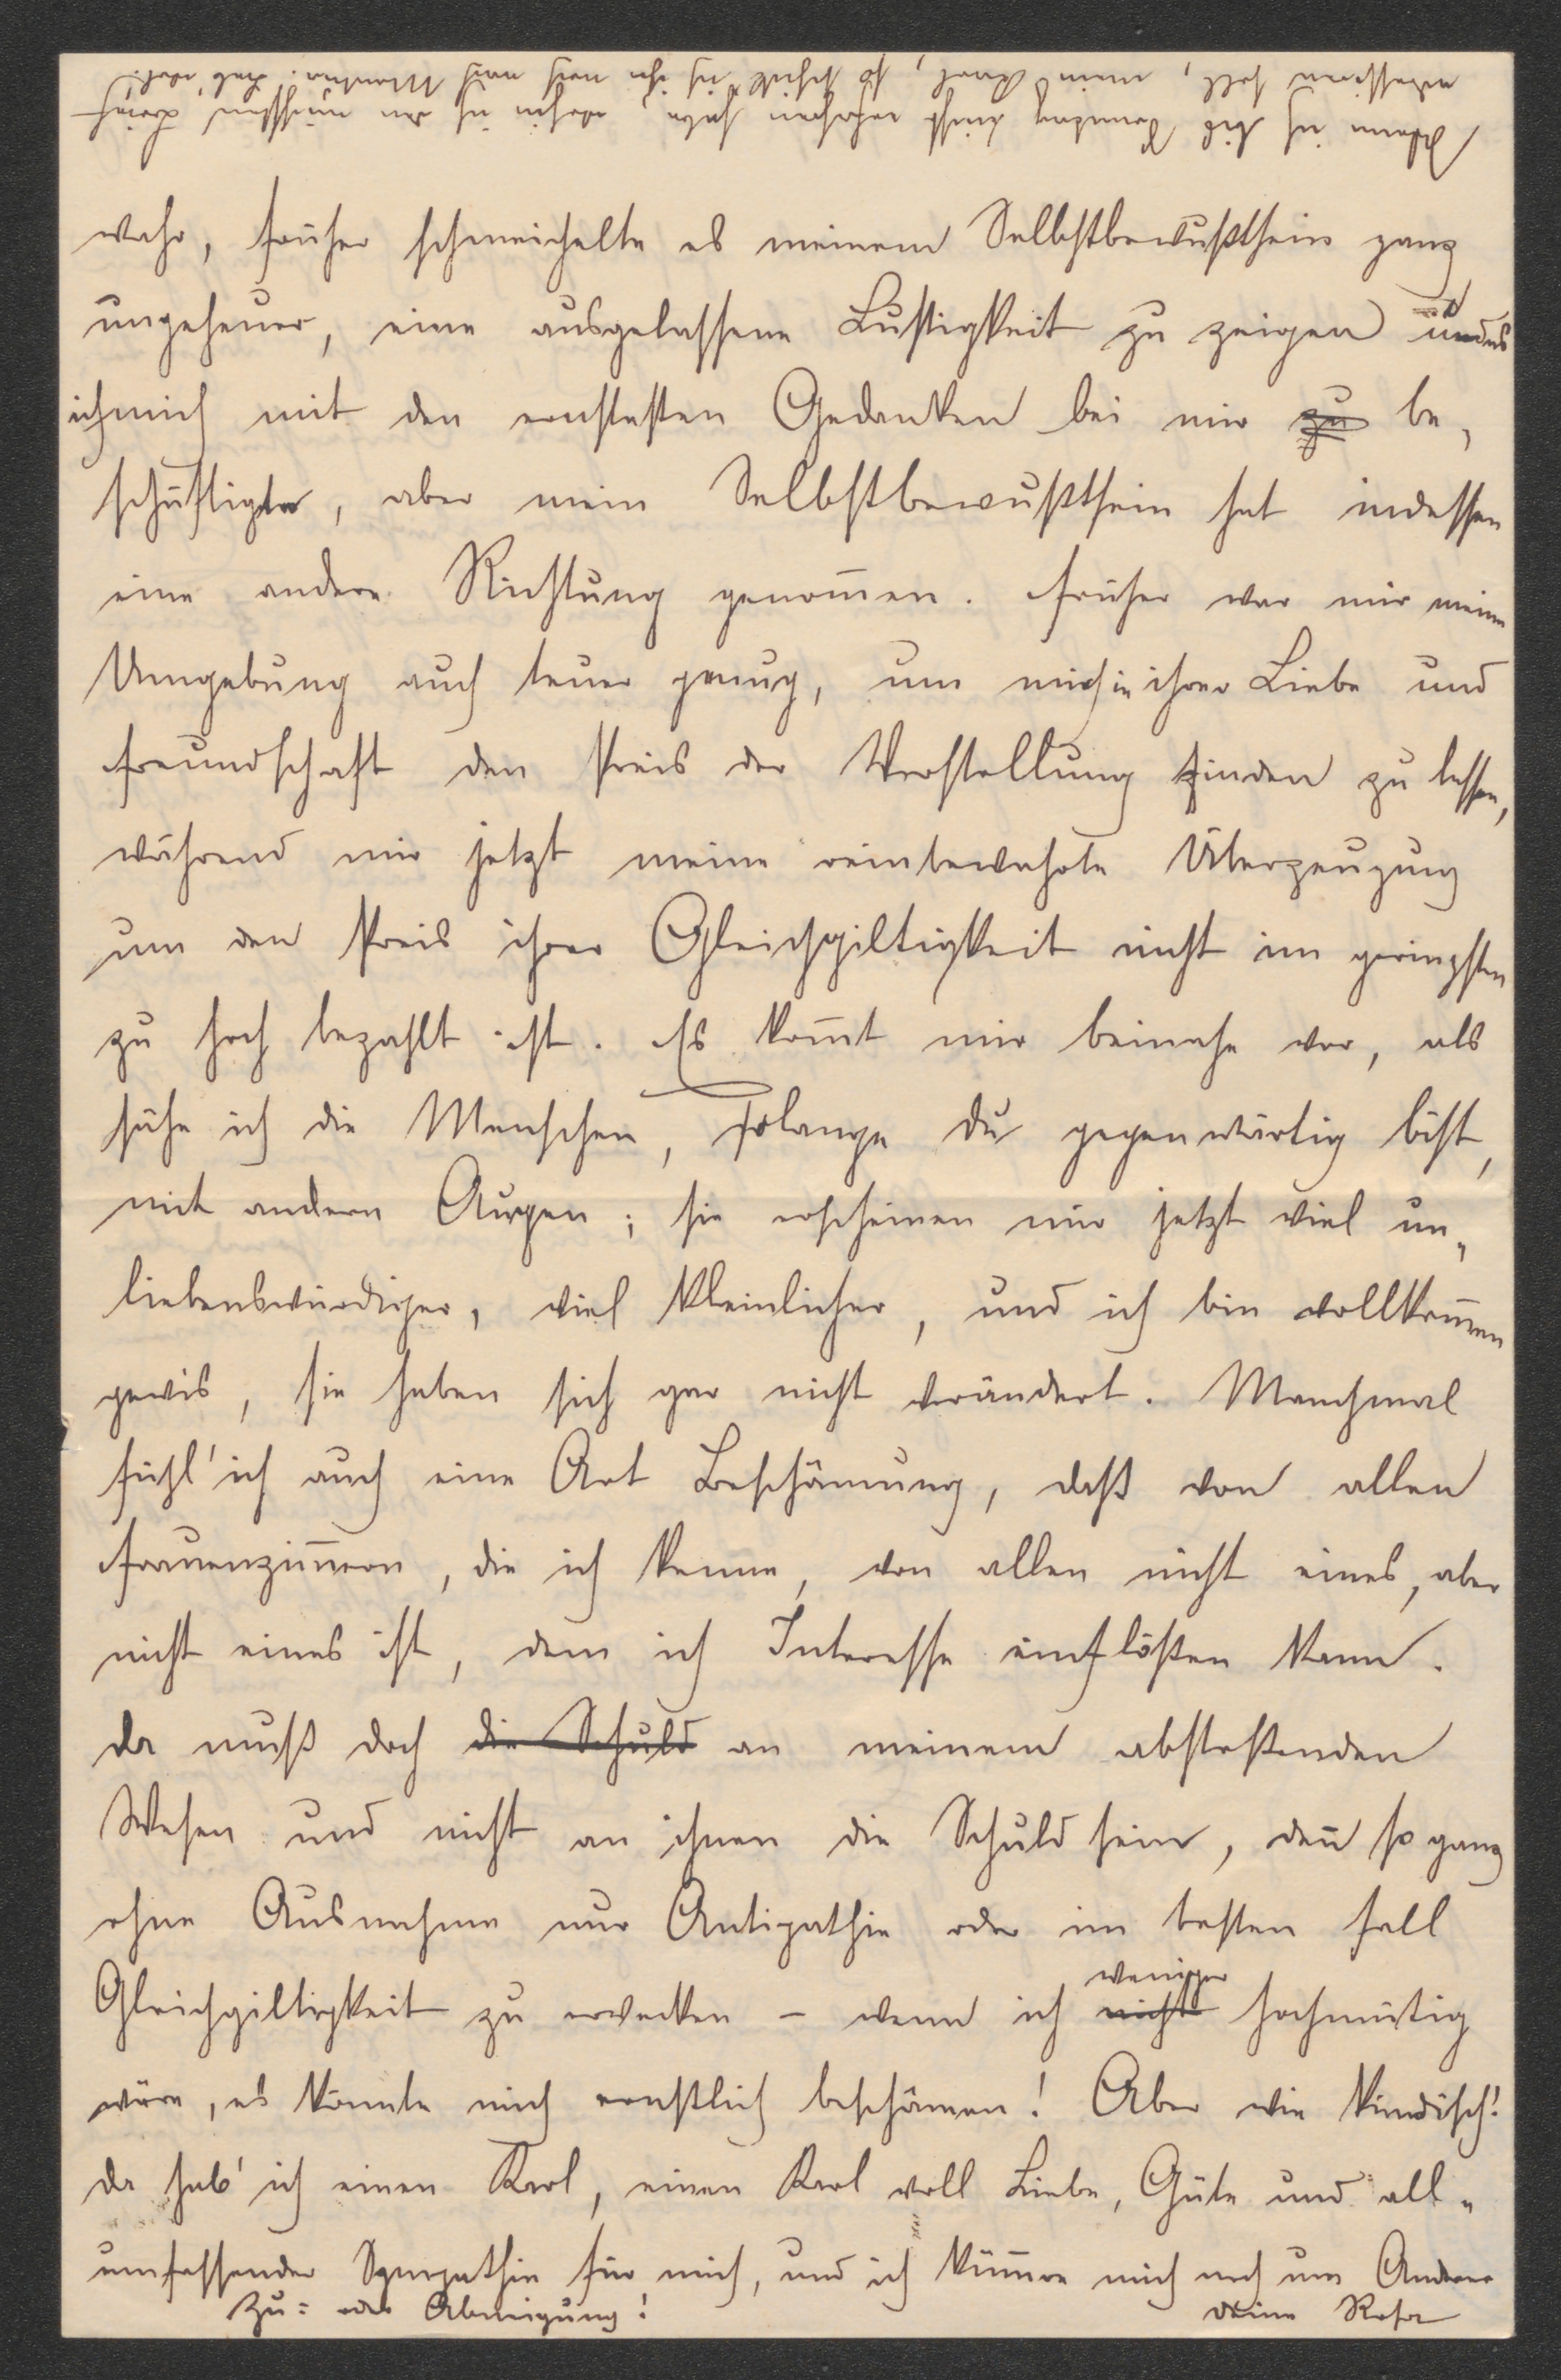 wahr, früher schmeichelte es meinem Selbstbewußtsein ganz
ungeheuer, eine ausgelassene Lustigkeit zu zeigen
ich mich mit den ernstesten Gedanken bei mir zu be„
schäftigte, aber mein Selbstbewußtsein hat indessen
eine andere Richtung genom̄en. Früher war mir meine
Umgebung auch teuer genug, um mich in ihrer Liebe und
Freundschaft den Preis der Verstellung finden zu lassen,
während mir jetzt meine reinbewahrte Überzeugung
um den Preis ihrer Gleichgiltigkeit nicht im geringsten
zu hoch bezahlt ist. Es kom̄t mir beinahe vor, als
sähe ich die Menschen, solange du gegenwärtig bist,
mit andern Augen; sie erscheinen mir jetzt viel un„
liebenswürdiger, viel kleinlicher, und ich bin vollkom̄en
gewis, sie haben sich gar nicht verändert. Manchmal
fühl' ich auch eine Art Beschämung, daß von allen
Frauenzim̄ern, die ich kenne, von allen nicht eines, aber
nicht eines ist, dem ich Interesse einflößen kann.
Da muß doch die Schuld an meinem abstoßenden
Wesen und nicht an ihnen die Schuld sein, den̄ so ganz
ohne Ausnahme nur Antipathie oder im besten Fall
weniger
Gleichgiltigkeit zu erwecken – wenn ich nicht hochmütig
wäre, es könnte mich ernstlich beschämen! Aber wie kindisch!
Da hab' ich einen Karl, einen Karl voll Liebe, Güte und all„
umfassender Sympathie für mich, und ich küm̄re mich noch um Anderer
Zu= oder Abneigung!
deine Rosa
Wenn ich bis Sonntag nicht erfahren habe, wohin ich den nächsten Brief
adressieren soll, mein Karl, so schick' ich ihn noch nach